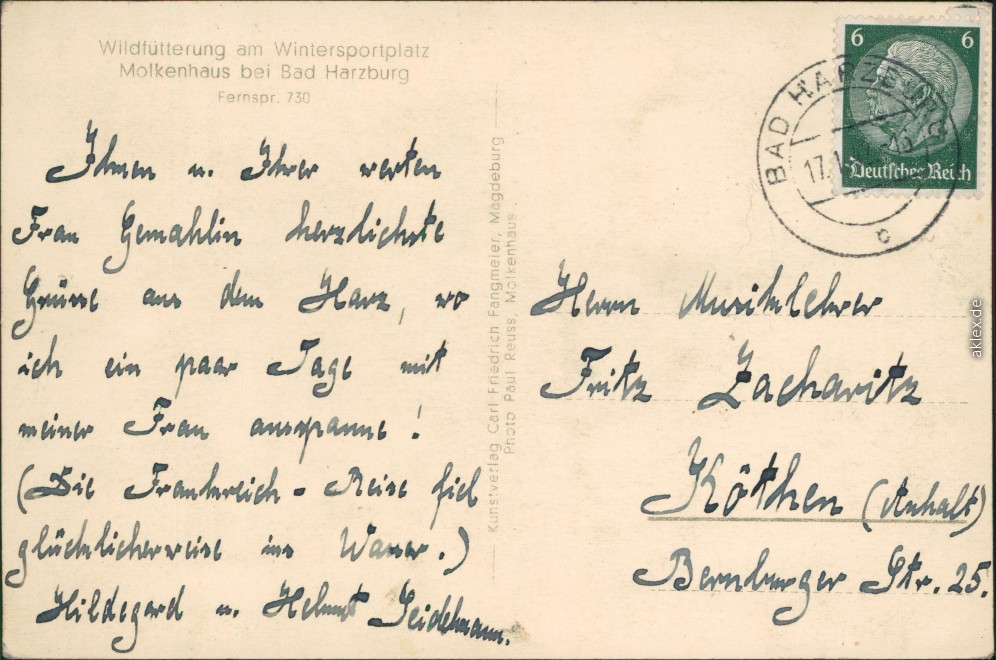 Wildfütterung am Wintersportplatz
Molkenhaus bei Bad Harzburg
Fernspr. 730
Ihnen u. Ihrer werten
Frau Gemahlin herzlichste
Grüsse aus dem Harz, wo
ich ein paar Tage mit
meiner Frau ausspanne!
(Die Frankreich-Reise fiel
glücklicherweise ins Wasser.)
Hildegard u. Helmut Seidelmann.
Kunstverlag Carl Friedrich Fangmeier, Magdeburg
Photo Paul Reuss, Molkenhaus
6 6
Deutsches Reich
BAD HARZBURG
17.1
c
Herrn Musiklehrer
Fritz Zacharitz
Köthen (Anhalt)
Bernburger Str. 25.
aklex.de